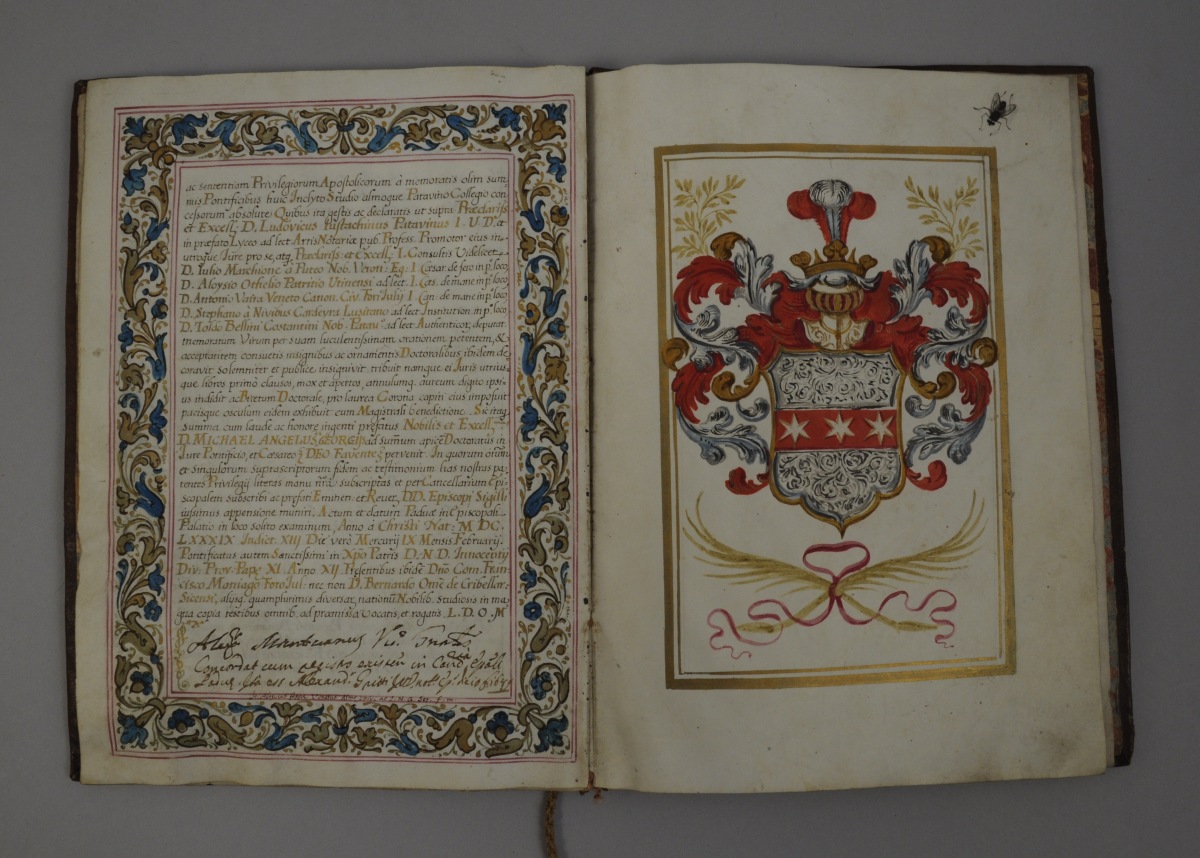 ac sententiam Privilegiorum Apostolicorum à memoratis olim sum-
mis Pontificibus huic Inclyto Studio almoque Patavino Collegio con
cessorum absolute. Quibus ita gestis ac declaratis ut supra Præclariss
et Excell. D. Ludovicus Pustachinus Patavinus I. U. D. et
in præfato Lyceo ad lect. Artis Notariæ pub. Profess. Promotor eius in
utroque Iure pro se, atq. Præclariss. et Excell. I. Consultis Videlicet
D. Iulio Marchione à Puteo Nob. Veron. Eq. I. Cæsar. de sero in p.º loco
D. Aloysio Othelio Patritio Utinensi ad lect. I. Cæs. de mane in p.º loco
D. Antonio Veneto Canon. Civ. Fori Iulij I. Can. de mane in p.º loco
D. Stephano à Nivibus Cardeyra Lusitano ad lect. Institution. in p.º loco
D. Toldo Bellini Costantini Nob. Patau. ad lect. Authenticor. deputat.
memoratum Virum per suam luculentissimam orationem petentem, &
acceptantem consuetis insignibus ac ornamentis Doctoralibus ibidem de
coravit solemniter et publice insignivit, tribuit namque ei Iuris utrius
que libros primò clausos, mox et apertos, annulumq. aureum digito ipsi
us indidit ac Biretum Doctorale, pro laurea Corona capiti eius imposuit
pacisque osculum eidem exhibuit cum Magistrali benedictione. Sic itaq.
summa cum laude ac honore ingenti præfatus Nobilis et Excell.
D. MICHAEL ANGELUS GEORGIIS ad summum apicem Doctoratus in
Iure Pontificio, et Cæsareo DEO Favente pervenit. In quorum omnium
et singulorum suprascriptorum fidem ac testimonium has nostras pa-
tentes Privilegij literas manu subscriptas et per Cancellarium Epi-
scopalem subscribi ac præfati Eminen. et Rever. DD. Episcopi Sigilli
iussimus appensione muniri. Actum et datum Paduæ in Episcopali
Palatio in loco solito examinum. Anno à Christi Nat. M DC.
LXXXIX Indict. XIII Die verò Mercurij IX Mensis Februarij.
Pontificatus autem Sanctissimi in Xpo Patris D. N. D. Innocentij
Div. Prov. Papæ XI. Anno XII. Presentibus ibidẽ Dno Com. Fran-
cisco Maniago Foro Iul. nec non D. Bernardo de Cribellar.
Sicensi, alijsq. quamplurimis diversar. nationũ Nobilib. Studiosis in ma
gna copia testibus omnib. ad præmissa Vocatis, et rogatis. L. D. O. M
Mantuanus
Concordat cum registro existen in